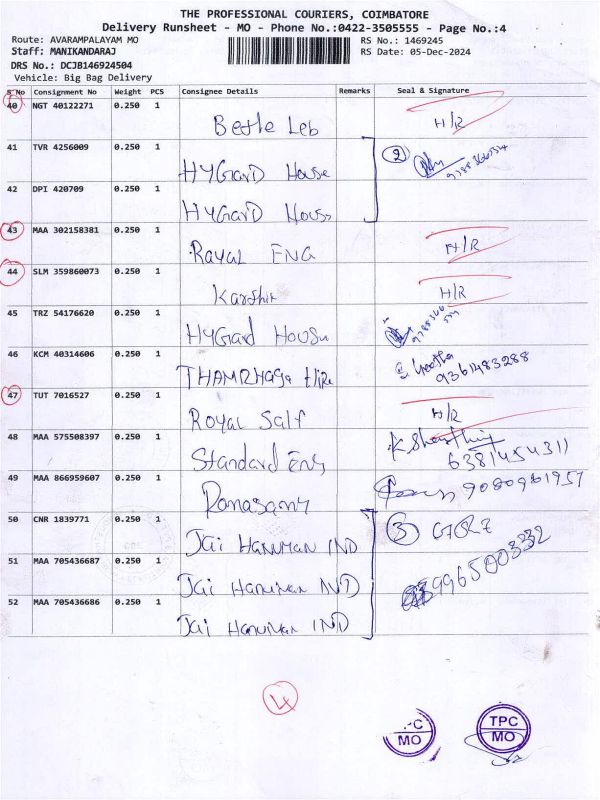 THE PROFESSIONAL COURIERS, COIMBATORE
Delivery Runsheet - MO - Phone No.:0422-3505555 - Page No.:4
Route: AVARAMPALAYAM MO
RS No.: 1469245
Staff: MANIKANDARAJ
RS Date: 05-Dec-2024
DRS No.: DCJB146924504
Vehicle: Big Bag Delivery
S No Consignment No Weight PCS Consignee Details Remarks Seal & Signature
40 NGT 40122271 0.250 1 Bettle Leb H/R
41 TVR 4256009 0.250 1 HYGIarD House 2
42 DPI 420709 0.250 1 HYGIarD Houss
43 MAA 302158381 0.250 1 Rayal ENG H/R
44 SLM 359860073 0.250 1 Karthik H/R
45 TRZ 54176620 0.250 1 HYGIard House
46 KCM 40314606 0.250 1 THAMIZHAGA Hire Geetha 9361483288
47 TUT 7016527 0.250 1 Royal Salf H/R
48 MAA 575508397 0.250 1 Standard Eng 6381454311
49 MAA 866959607 0.250 1 Ramasamy 9080961957
50 CNR 1839771 0.250 1 Jai Hanuman IND 3
51 MAA 705436687 0.250 1 Jai Hanuman IND 9965003332
52 MAA 705436686 0.250 1 Jai Hanuman IND
4
MO
TPC
MO